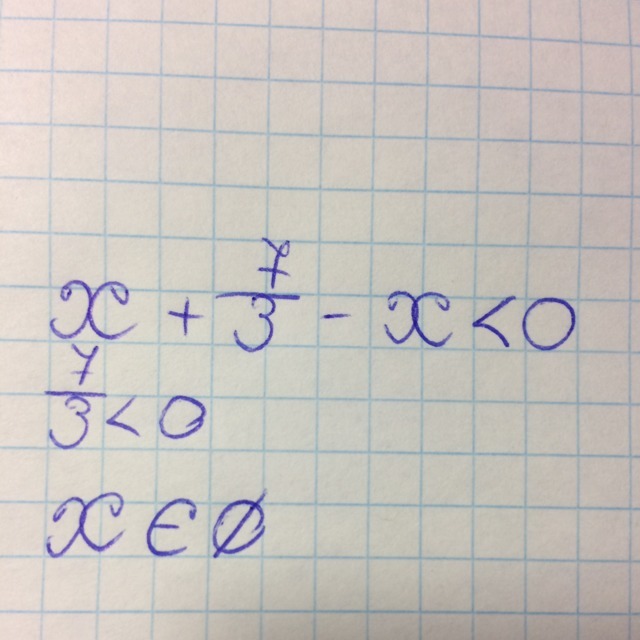 x + 7/3 - x < 0
7/3 < 0
x ∈ ∅